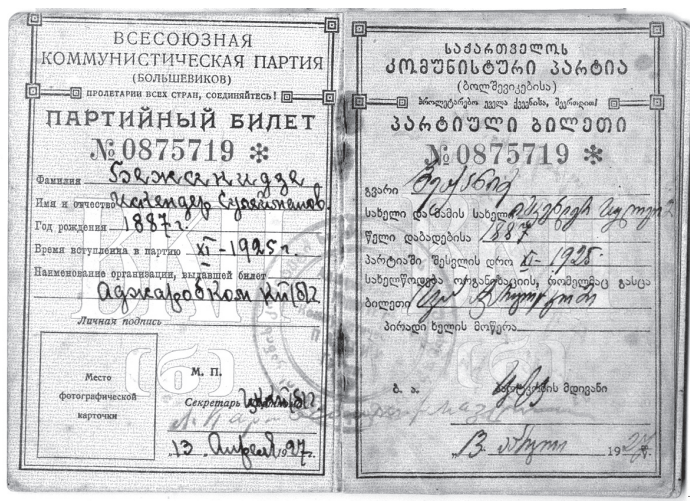 ВСЕСОЮЗНАЯ
КОММУНИСТИЧЕСКАЯ ПАРТИЯ
(БОЛЬШЕВИКОВ)
ПРОЛЕТАРИИ ВСЕХ СТРАН, СОЕДИНЯЙТЕСЬ!
ПАРТИЙНЫЙ БИЛЕТ
№ 0875719 *
Фамилия Бежанидзе
Имя и отчество Искендер Сулейманов.
Год рождения 1887 г.
Время вступления в партию XI-1925 г.
Наименование организации, выдавшей билет
Аджаробком КП(б)Г
Личная подпись
Место
фотографической
карточки
М. П.
Секретарь
„13" Апреля 1927
საქართველოს
კომუნისტური პარტია
(ბოლშევიკებისა)
პროლეტარებო ყველა ქვეყნისა, შეერთდით!
პარტიული ბილეთი
№ 0875719 *
გვარი
სახელი და მამის სახელი
წელი დაბადებისა 1887
პარტიაში შესვლის დრო XI-1925
სახელწოდება ორგანიზაციის, რომელმაც გასცა
ბილეთი
პირადი ხელის მოწერა
ბ. ა.
მდივანი
„13 1927